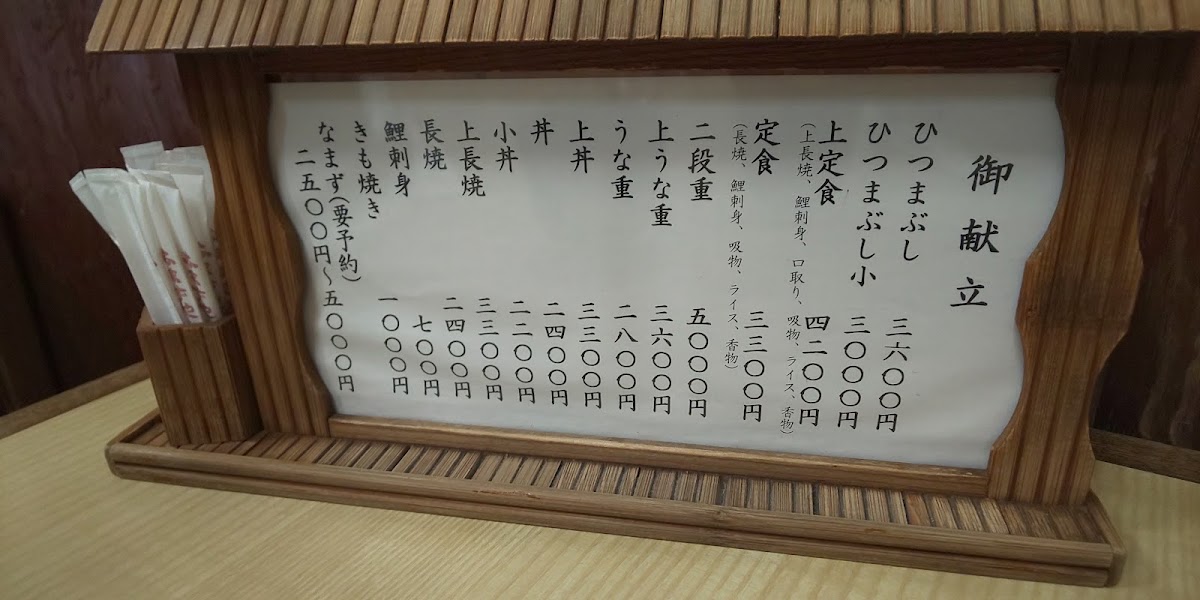 御献立
ひつまぶし 三六〇〇円
ひつまぶし小 三〇〇〇円
上定食 四二〇〇円
(上長焼、鯉刺身、口取り、吸物、ライス、香物)
定食 三三〇〇円
(長焼、鯉刺身、吸物、ライス、香物)
二段重 五〇〇〇円
上うな重 三六〇〇円
うな重 二八〇〇円
上丼 三三〇〇円
丼 二四〇〇円
小丼 二二〇〇円
上長焼 三三〇〇円
長焼 二四〇〇円
鯉刺身 七〇〇円
きも焼き 一〇〇〇円
なまず(要予約)
二五〇〇円〜五〇〇〇円